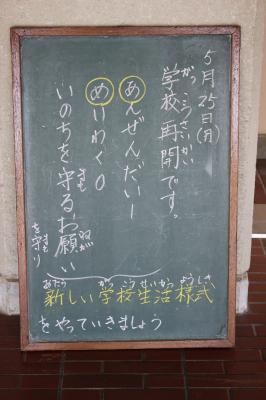 5月25日(月)
学校再開です。
がっこうさいかい
あんぜんだいー
めいわく0
いのちを守るお願い
まも
ねが
を守り
まも
新しい学校生活様式
あたら
がっこうせいかつ
ようしき
をやっていきましょう